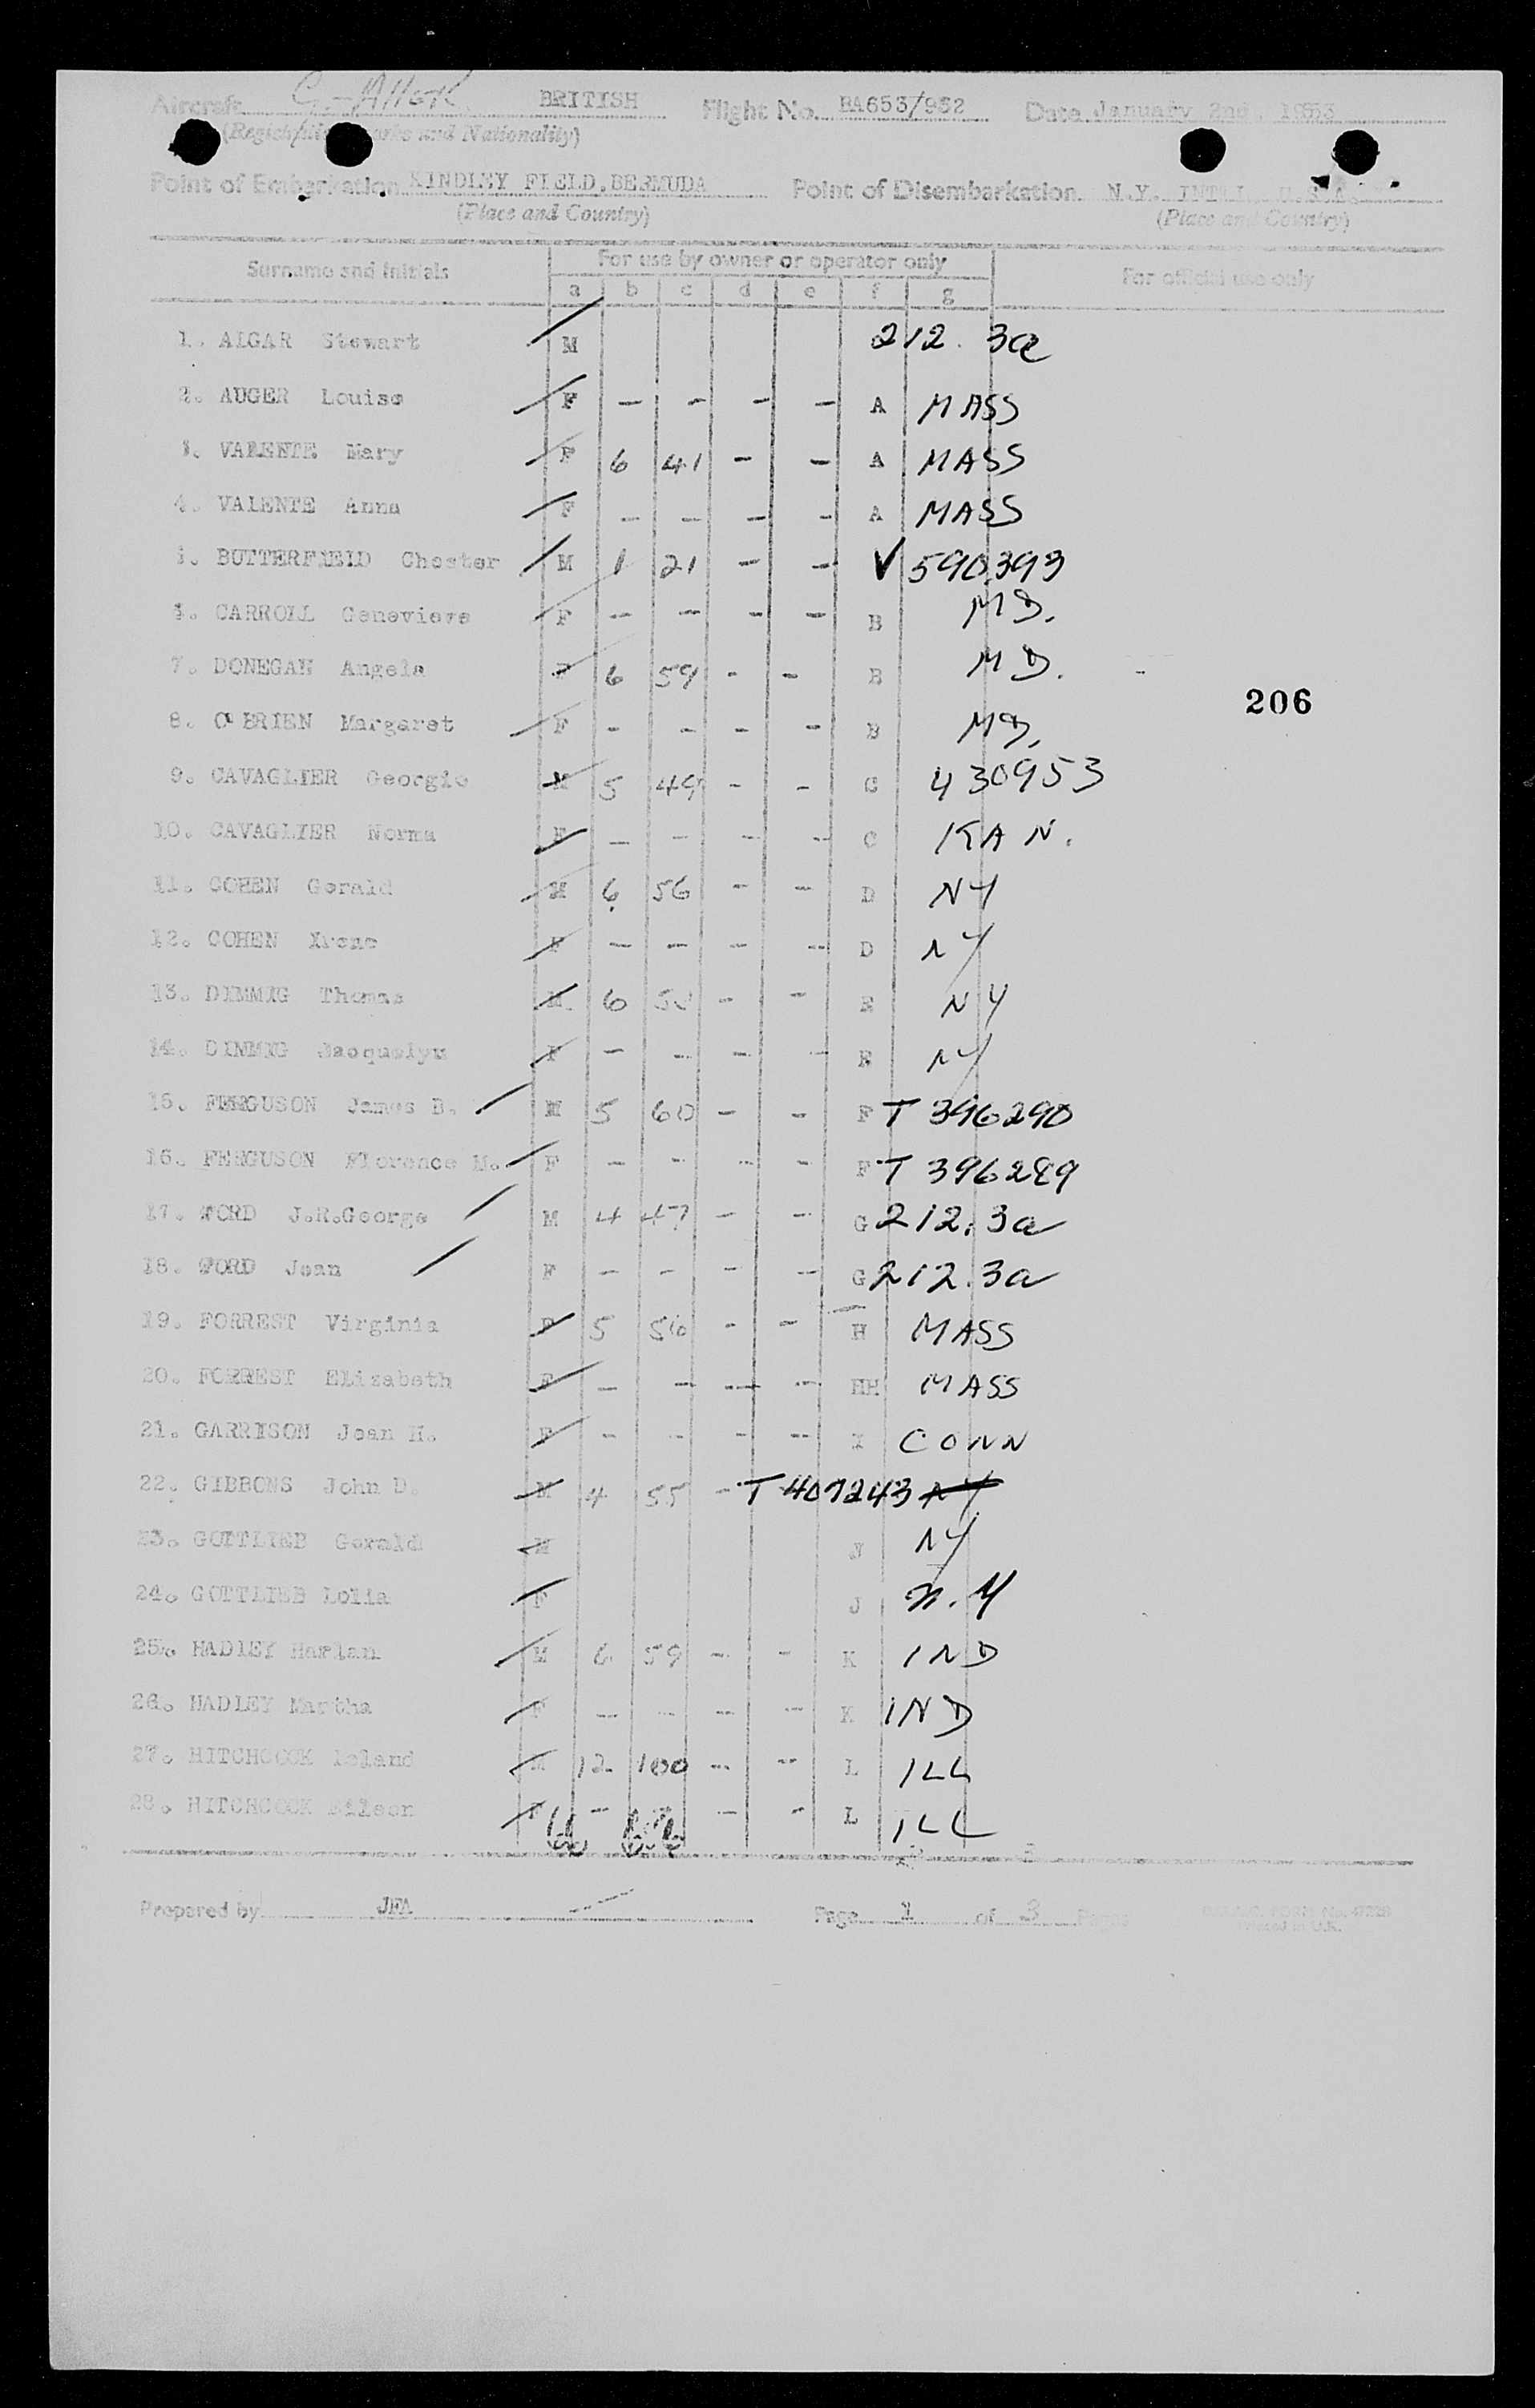 Aircraft BRITISH Flight No. BA653/952 Date January 2nd. 1953
and Nationality)
Point of Embarkation KINDLEY FIELD, BERMUDA Point of Disembarkation N.Y. INT'L. U.S.A.
(Place and Country) (Place and Country)
For use by owner or operator only
Surname and Initials For official use only
a b c d e f g
1. ALGAR Stewart M 212. 3a
2. AUGER Louise F - - - - A MASS
VALENTE Mary F 6 41 - - A MASS
4. VALENTE Anna F - - - - A MASS
BUTTERFIELD Chester M 1 21 - - V 590393
CARROLL Genevieve F - - - - B MD.
7. DONEGAN Angela F 6 59 - - B MD.
206
8. O'BRIEN Margaret F - - - - B MD.
9. CAVAGLIER Georgie M 5 49 - - C 430953
10. CAVAGLIER Norma F - - - - C KAN.
11. COHEN Gerald M 6 56 - - D NY
12. COHEN Irene F - - - - D NY
13. DIMMIG Thomas M 6 50 - - E NY
14. DIMMIG Jacquelyn F - - - - E NY
15. FERGUSON James B. M 5 60 - - F T 396290
16. FERGUSON Florence M. F - - - - F T 396289
17. FORD J.R.George M 4 47 - - G 212. 3a
18. FORD Jean F - - - - G 212. 3a
19. FORREST Virginia F 5 56 - - H MASS
20. FORREST Elizabeth F - - - - HH MASS
21. GARRISON Jean H. F - - - - I CONN
22. GIBBONS John D. M 4 55 - T 407243 NY
23. GOTTLIEB Gerald M NY
24. GOTTLIEB Lolia F J N.Y
25. HADLEY Harlan M 6 59 - - K IND
26. HADLEY Martha F - - - - K IND
27. HITCHCOCK Leland M 12 100 - - L ILL
28. HITCHCOCK F - - - - L ILL
Prepared by JFA Page 1 of 3 Pages
Printed in U.K.